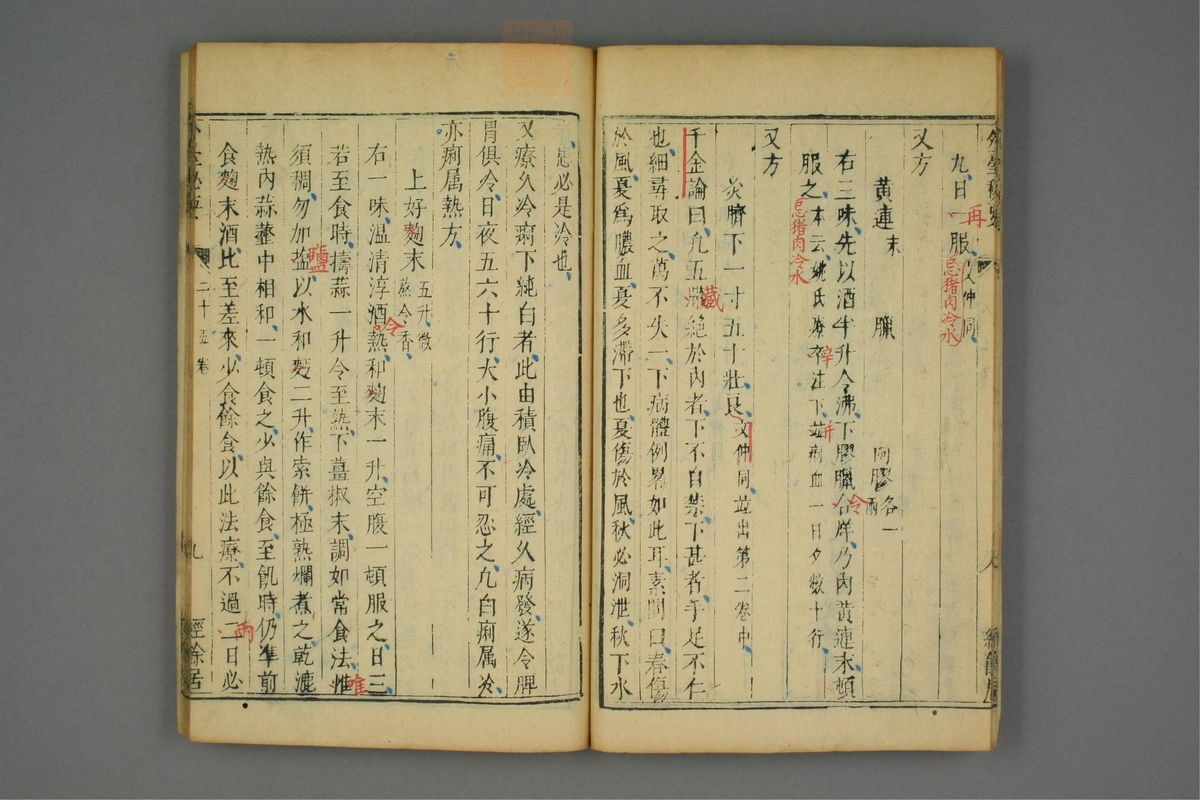 外臺秘要
九日再服
忌猪肉冷水
又方
黄連末 臘 阿膠各一兩
右三味先以酒半升令沸下膠臘合烊乃内黄連末頓
服之
忌猪肉冷水
本云姚氏療卒注下并痢血一日夕數十行
又方
灸臍下一寸五十壯
文仲同並出第二卷中
千金論曰凡五臟絕於内者下不自禁下甚者手足不仁
藏
也細尋取之萬不失一下病體例畧如此耳素問曰春傷
於風夏為膿血夏多滯下也夏傷於風秋必洞泄秋下水
患必是冷也
又療久冷痢下純白者此由積臥冷處經久病發遂令脾
胃俱冷日夜五六十行大小腹痛不可忍之凡白痢属冷
亦痢属熱方
上好麴末五升微熬令香
右一味温清淳酒熱和麴末一升空腹一頓服之日三
令
若至食時擣蒜一升令至熟下薑椒末調如常食法惟
唯
須稠勿加鹽以水和麪二升作索餅極熟爛煮之乾漉
鹽
熱内蒜虀中相和一頓食之少與餘食至飢時仍準前
食麴末酒比至差來少食餘食以此法療不過二日必
兩
二十五卷
九
經餘居